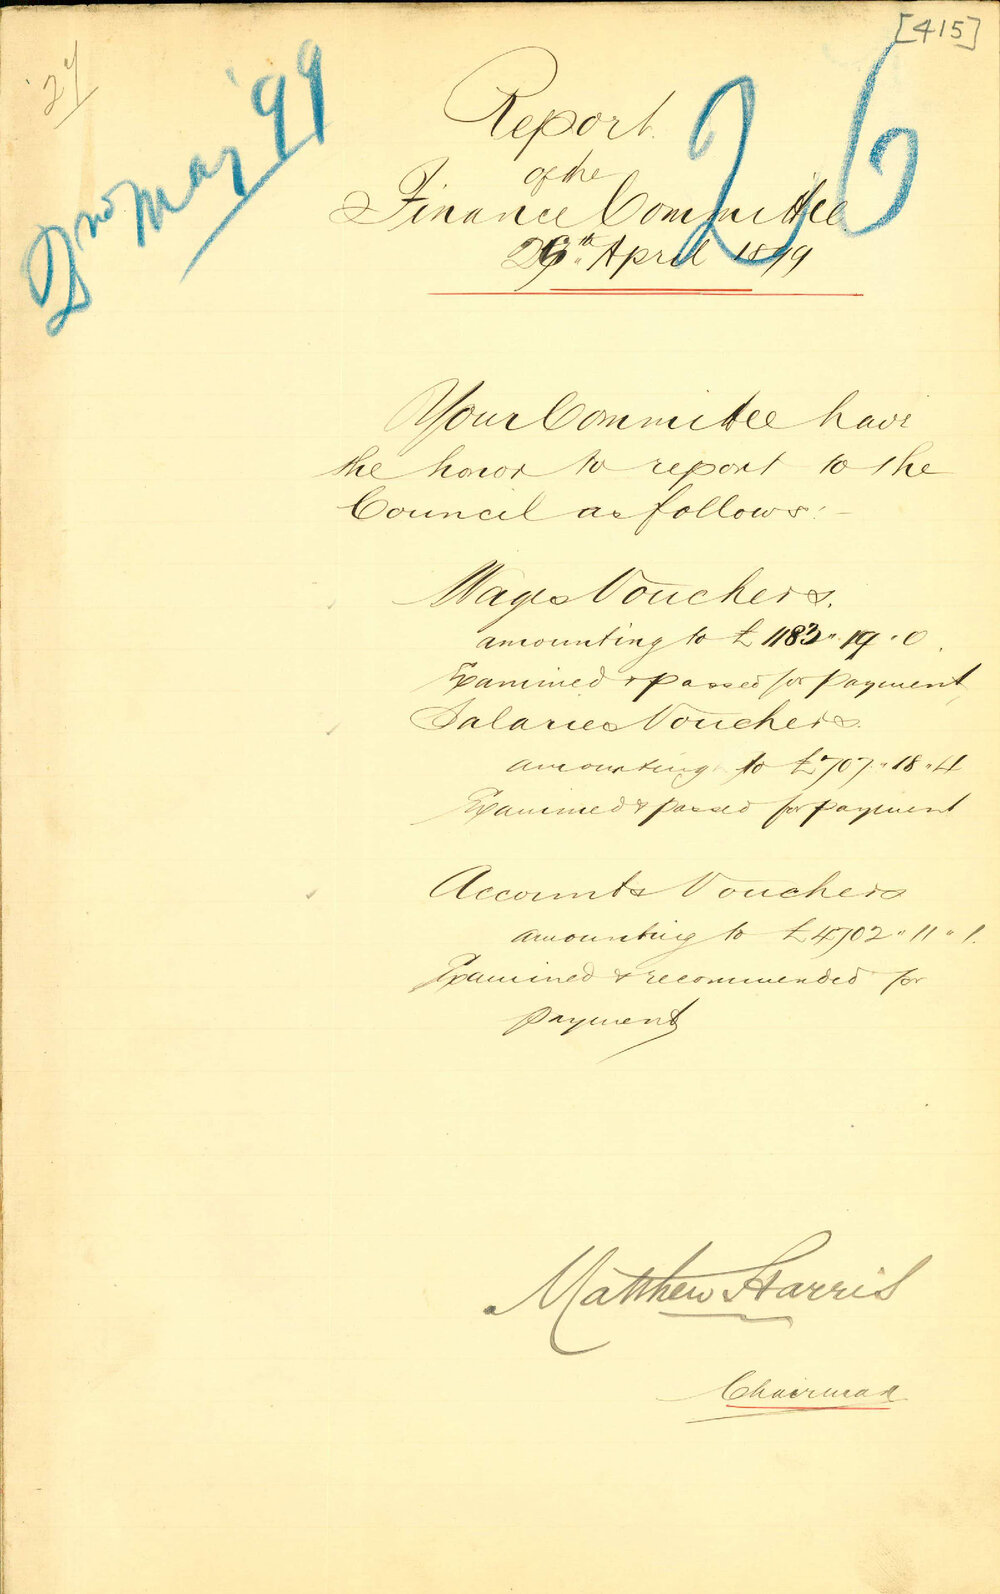 [415]
'27
2nd May '99
26
Report
of the
Finance Committee
29th April 1899
Your Committee have
the honor to report to the
Council as follows:-
Wages Vouchers.
amounting to £1183"19"0.
Examined & passed for payment
Salaries Vouchers.
amounting to £707"18"4
Examined & passed for payment
Accounts Vouchers
amounting to £4702"11"1.
Examined & recommended for
payment
Matthew Harris
Chairman